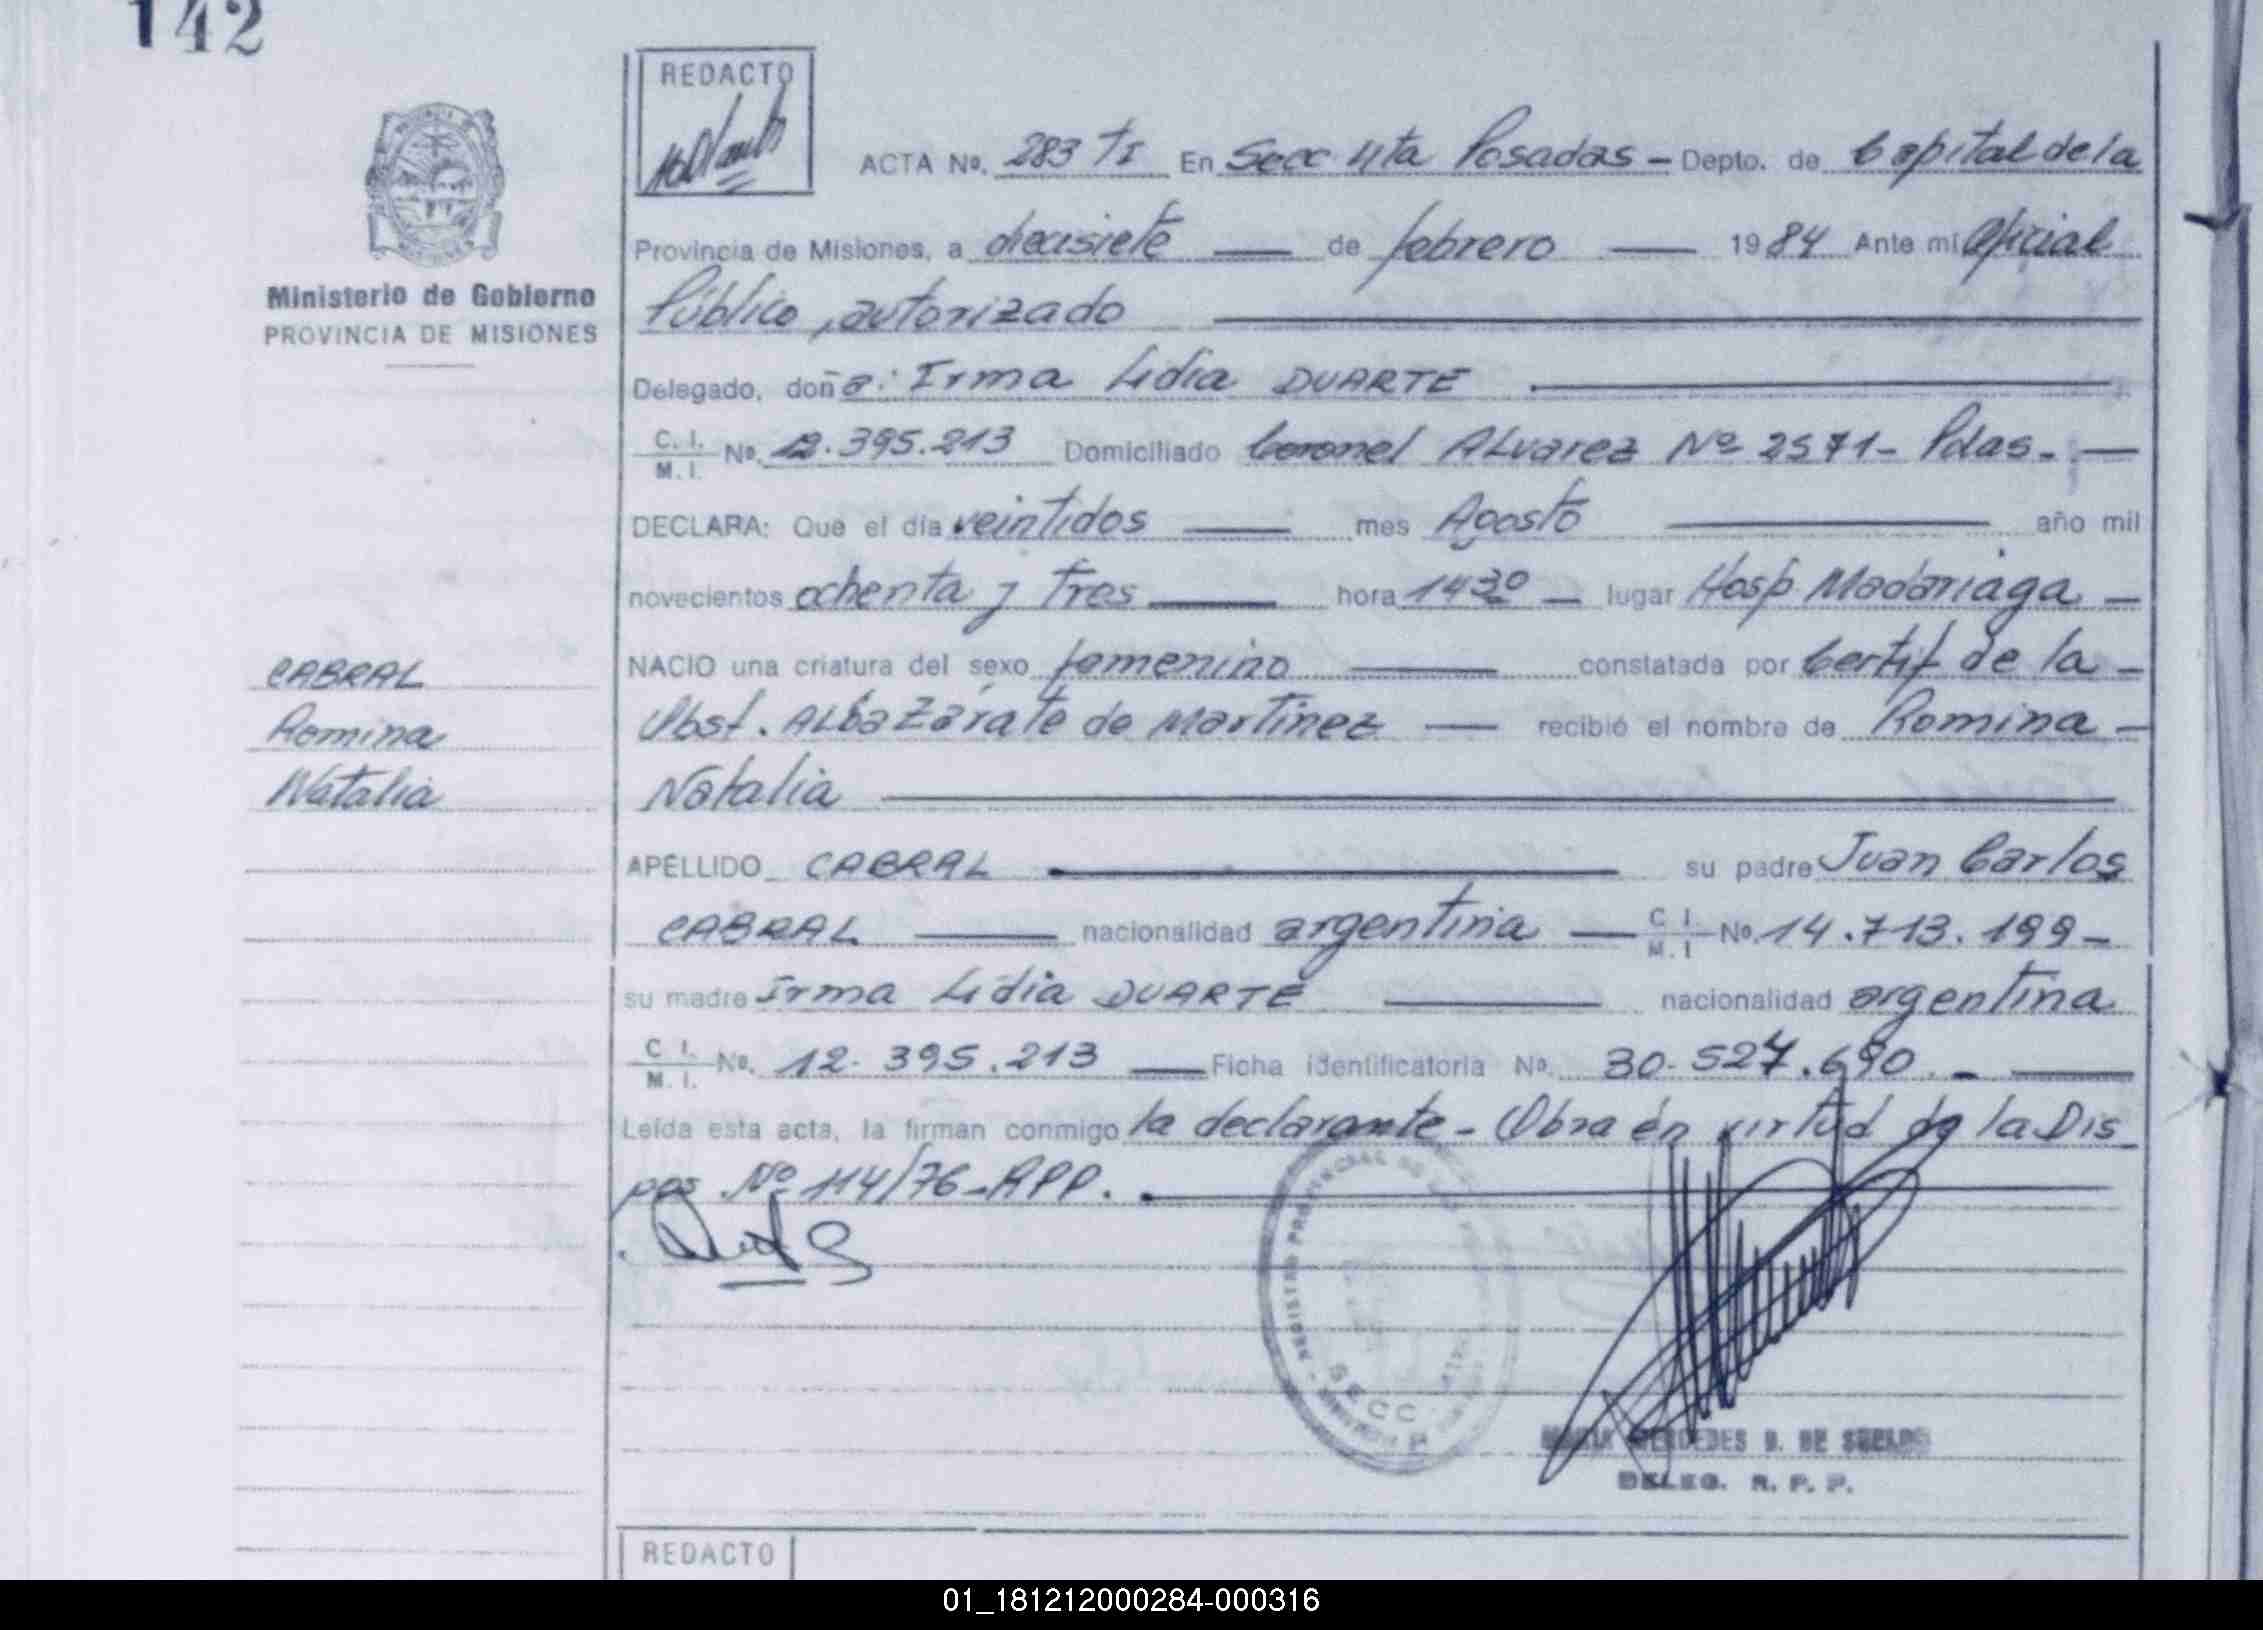 142
REDACTO
ACTA No. 283 TI En Secc 4ta Posadas - Depto. de Capital de la
Ministerio de Gobierno
PROVINCIA DE MISIONES
Provincia de Misiones, a diecisiete de febrero 1984 Ante mi Oficial
Público, autorizado
Delegado, doña: Irma Lidia DUARTE
C. I. / M. I. No. 12.395.213 Domiciliado Coronel ALvarez Nº 2571 - Pdas. -
DECLARA: Que el día veintidos mes Agosto año mil
novecientos ochenta y tres hora 1430 lugar Hosp. Madariaga -
NACIO una criatura del sexo femenino constatada por Certif de la -
Obst. ALba Zárate de Martinez recibió el nombre de Romina -
Natalia
CABRAL
Romina
Natalia
APELLIDO CABRAL su padre Juan Carlos
CABRAL nacionalidad argentina C. I. / M. I No. 14.713.199 -
su madre Irma Lidia DUARTE nacionalidad argentina
C. I. / M. I. No. 12.395.213 Ficha identificatoria No. 30.527.690. -
Leída esta acta, la firman conmigo la declarante - Obra en virtud de la Dis
pos. Nº 114/76 - RPP.
REGISTRO PROVINCIAL DE LAS
SECC
MARIA MERCEDES D. DE
DELEG. R. P. P.
REDACTO
01_181212000284-000316